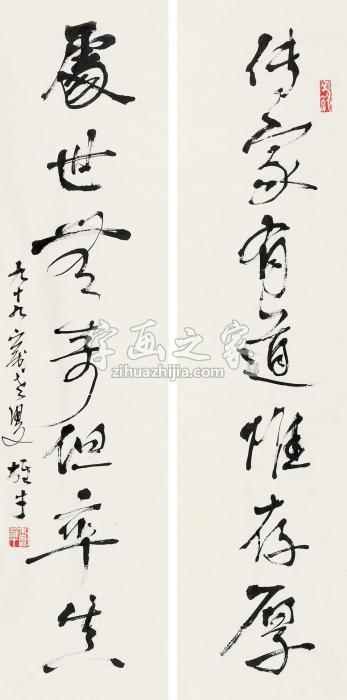 傳家有道惟存厚
處世無奇但率真
九十九歲老叟
字画之家
zihuazhijia.com